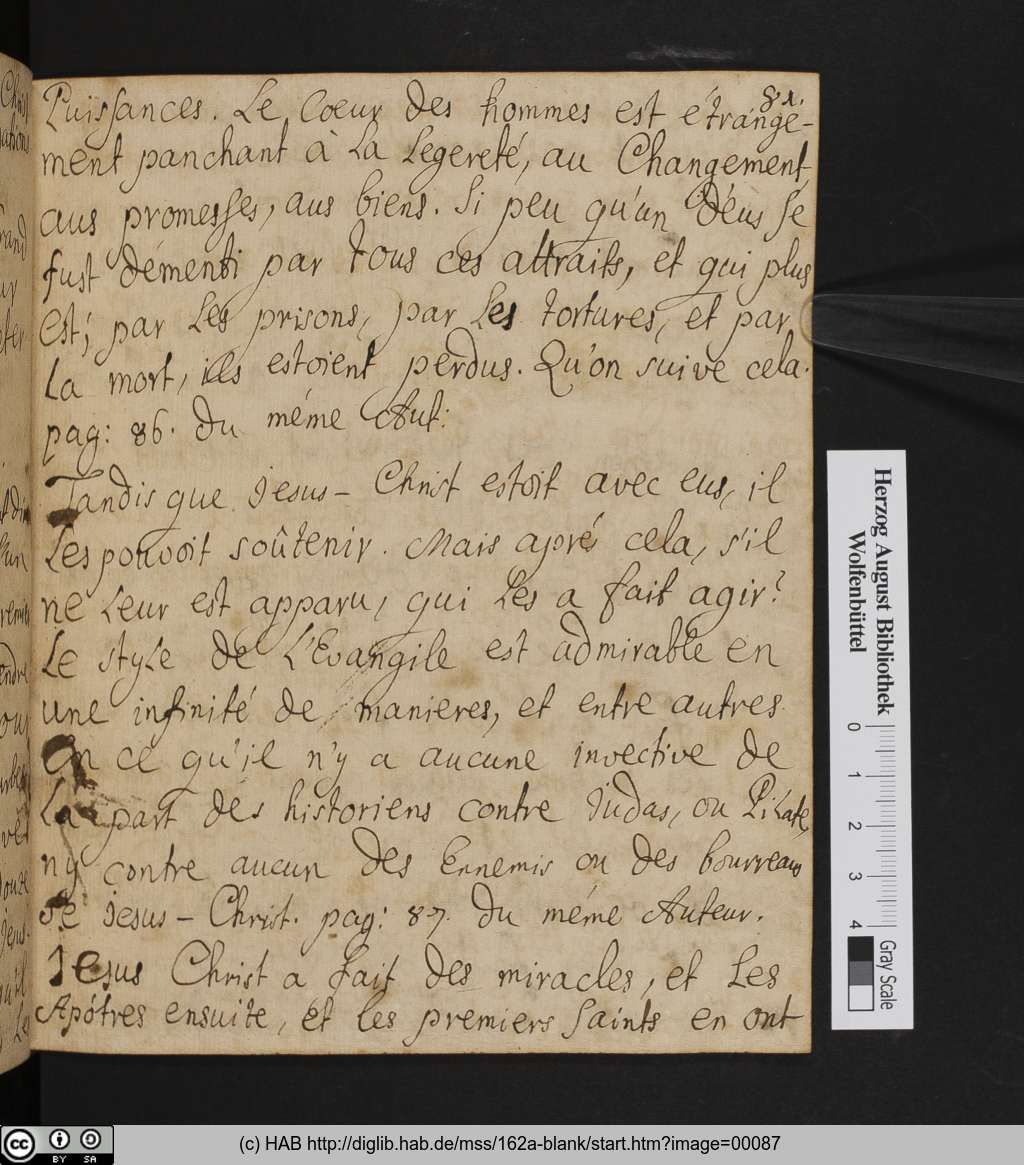 81.
Puissances. Le Coeur des hommes est étrange-
ment panchant à La Legereté, au Changement,
aus promesses, aus biens. Si peu qu'un d'eus se
fust démenti par tous ces attraits, et qui plus
est; par Les prisons, par Les tortures, et par
La mort, ils estoient perdus. Qu'on suive cela.
pag: 86. du méme Aut:
Tandis que Jesus-Christ estoit avec eus, il
Les pouvoit soûtenir. Mais aprés cela, s'il
ne Leur est apparu, qui Les a fait agir?
Le styLe de L'Evangile est admirable en
une infinité de manieres, et entre autres
En ce qu'il n'y a aucune invective de
La part des historiens contre Judas, ou PiLate,
ny contre aucun des Ennemis ou des bourreaus
de Jesus-Christ. pag: 87. du méme Auteur.
Jesus Christ a fait des miracles, et Les
Apótres ensuite, et les premiers Saints en ont
Herzog August Bibliothek
Wolfenbüttel
0 1 2 3 4
Gray Scale
cc BY SA
(c) HAB http://diglib.hab.de/mss/162a-blank/start.htm?image=00087